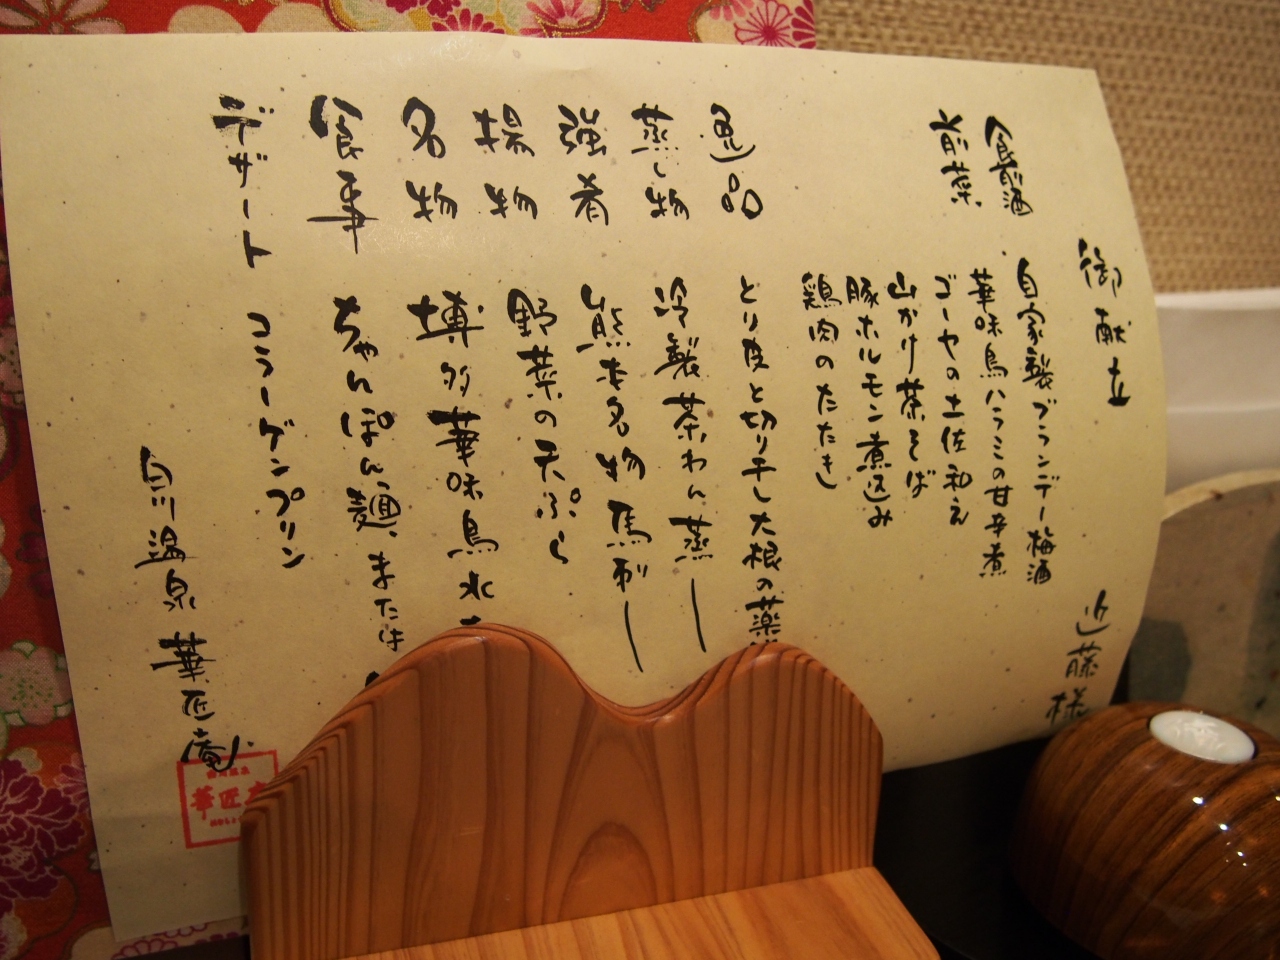 御献立 近藤様
食前酒 自家製ブランデー梅酒
前菜 華味鳥ハラミの甘辛煮
ゴーヤの土佐和え
山かけ茶そば
豚ホルモン煮込み
鶏肉のたたき
逸品 とり皮と切り干し大根の薬
蒸し物 冷製茶わん蒸し
強肴 熊本名物馬刺し
揚物 野菜の天ぷら
名物 博多華味鳥水
食事 ちゃんぽん麺、または
デザート コラーゲンプリン
白川温泉 華匠庵
華匠